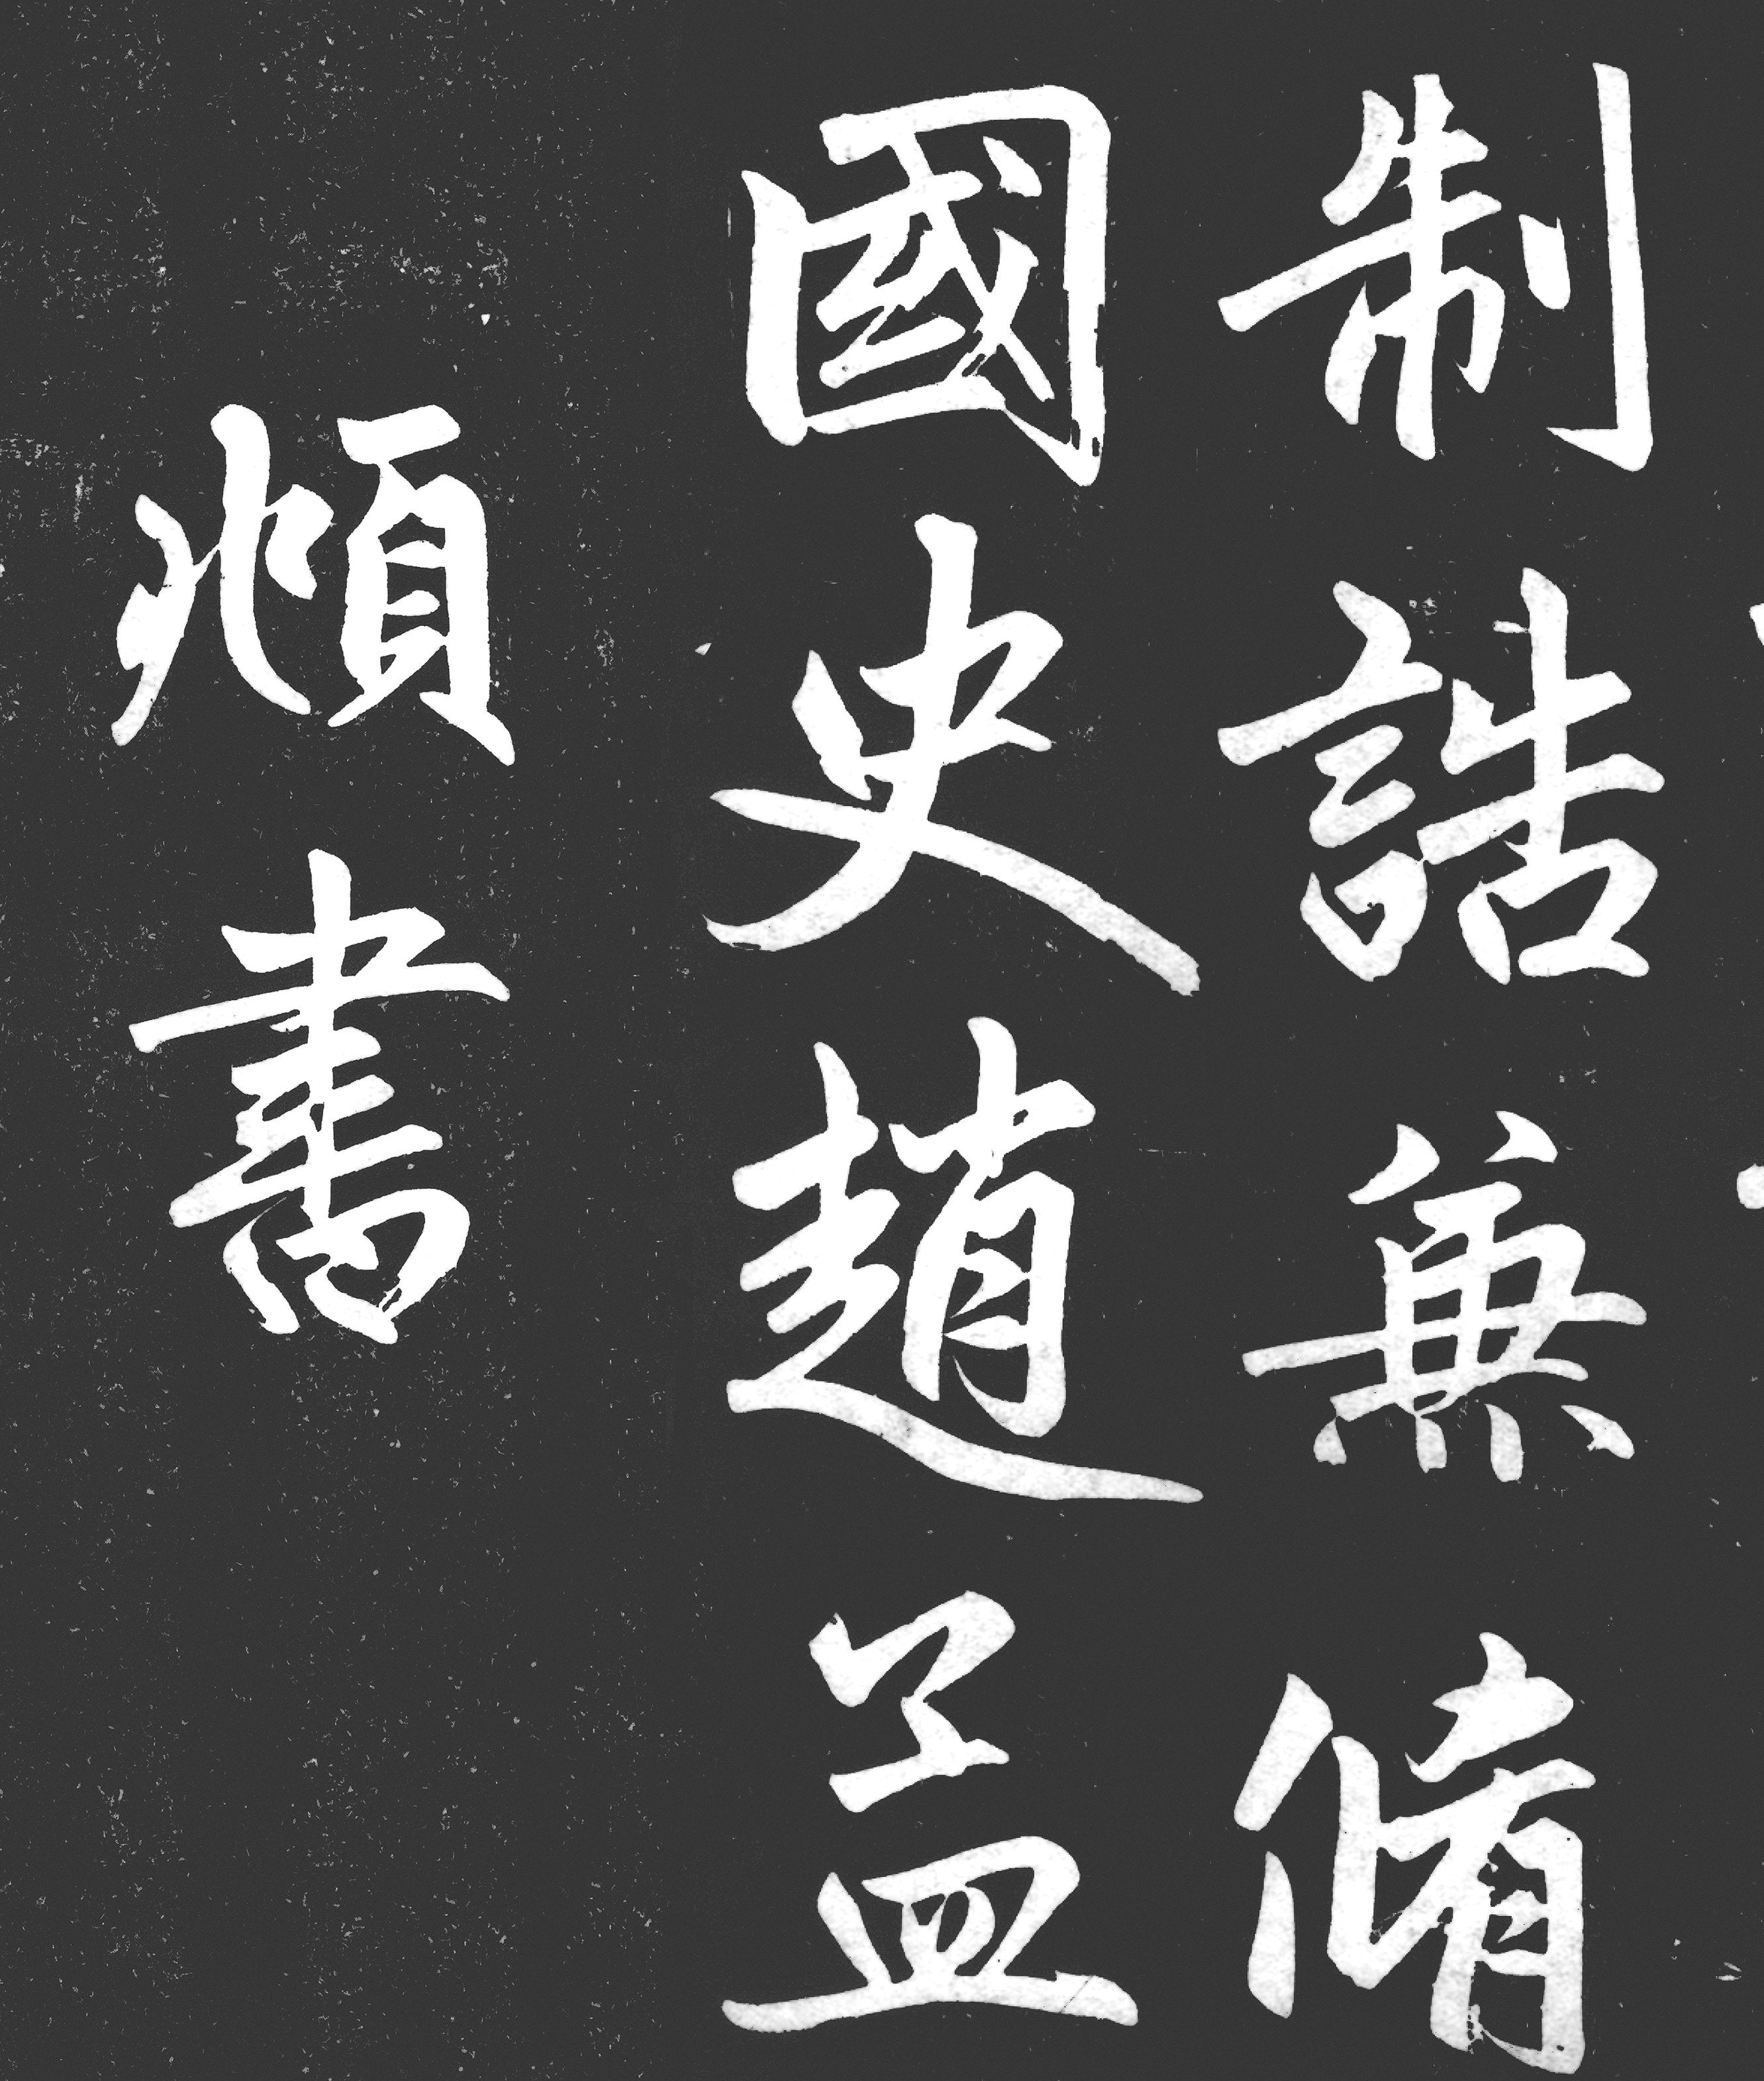 制誥兼脩
國史趙孟
頫書